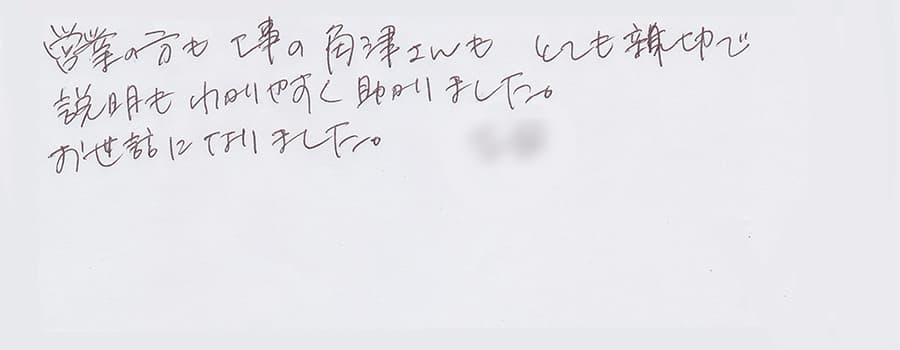 営業の方も 工事の 角津さんも とても親切で
説明もわかりやすく助かりました。
お世話になりました。